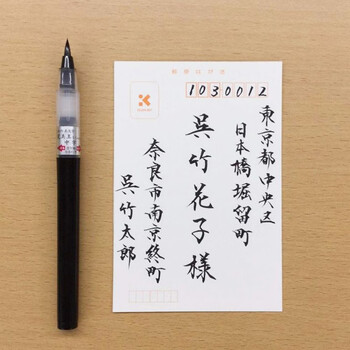 郵便はがき
1030012
東京都中央区
日本橋堀留町
呉竹花子様
奈良市南京終町
呉竹太郎